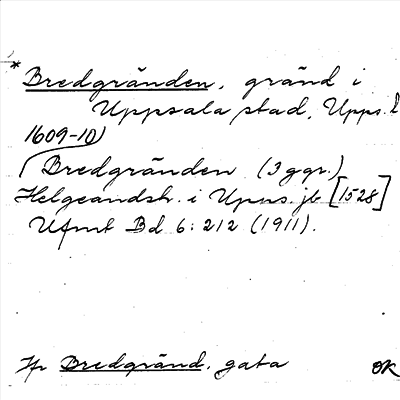 * Bredgränden, gränd i
Uppsala stad, Upps. l
1609-10)
Bredgränden (3 ggr.)
Helgeandsh. i Upps. jb [1528]
Ufmt Bd 6: 212 (1911).
Jfr Bredgränd, gata
OK